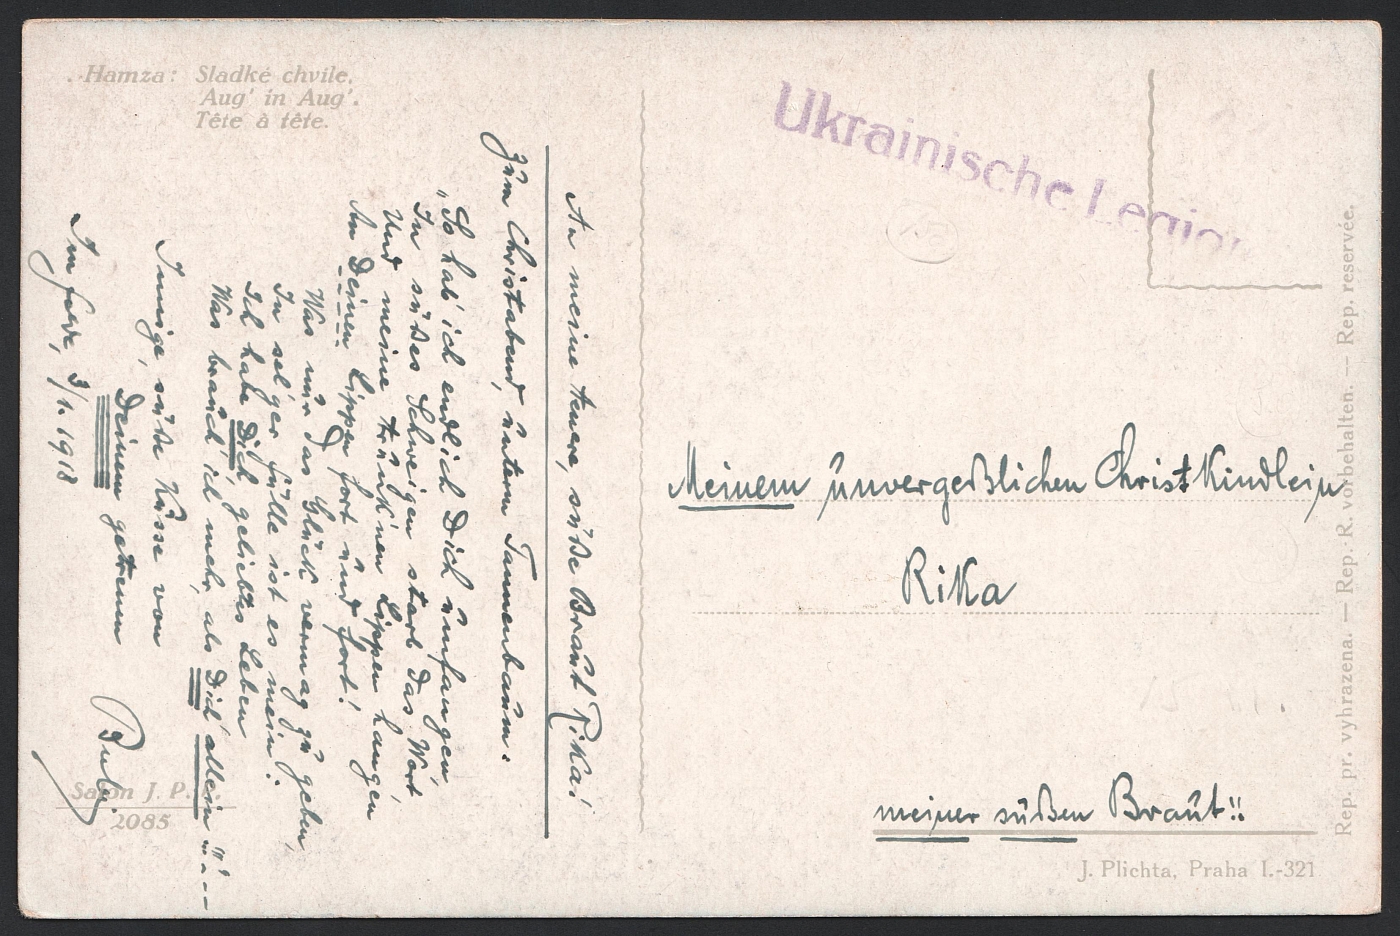 Hamza: Sladké chvíle.
Aug' in Aug'.
Tête à tête.
Ukrainische Legion
An meine teuere, süße Braut Rika!
Zum Christabend, unterm Tannenbaum.
„So hab' ich endlich Dich umfangen,
In süßes Schweigen starb das Wort
Und meine trunk'nen Lippen hangen
An Deinen Lippen fort und fort!
Was nur das Glück vermag zu geben,
In sel'ger Fülle ist es mein:
Ich habe Dich, geliebtes Leben
Was brauch' ich mehr, als Dich allein"!!
Innige, süße Küsse von
Deinem getreuen
Im Felde, 3/1. 1918
Meinem unvergeßlichen Christkindlein
Rika
meiner süßen Braut!!
Salon J. P.
2085
J. Plichta, Praha I.-321
Rep. pr. vyhrazena. — Rep.-R. vorbehalten. — Rep. reservée.